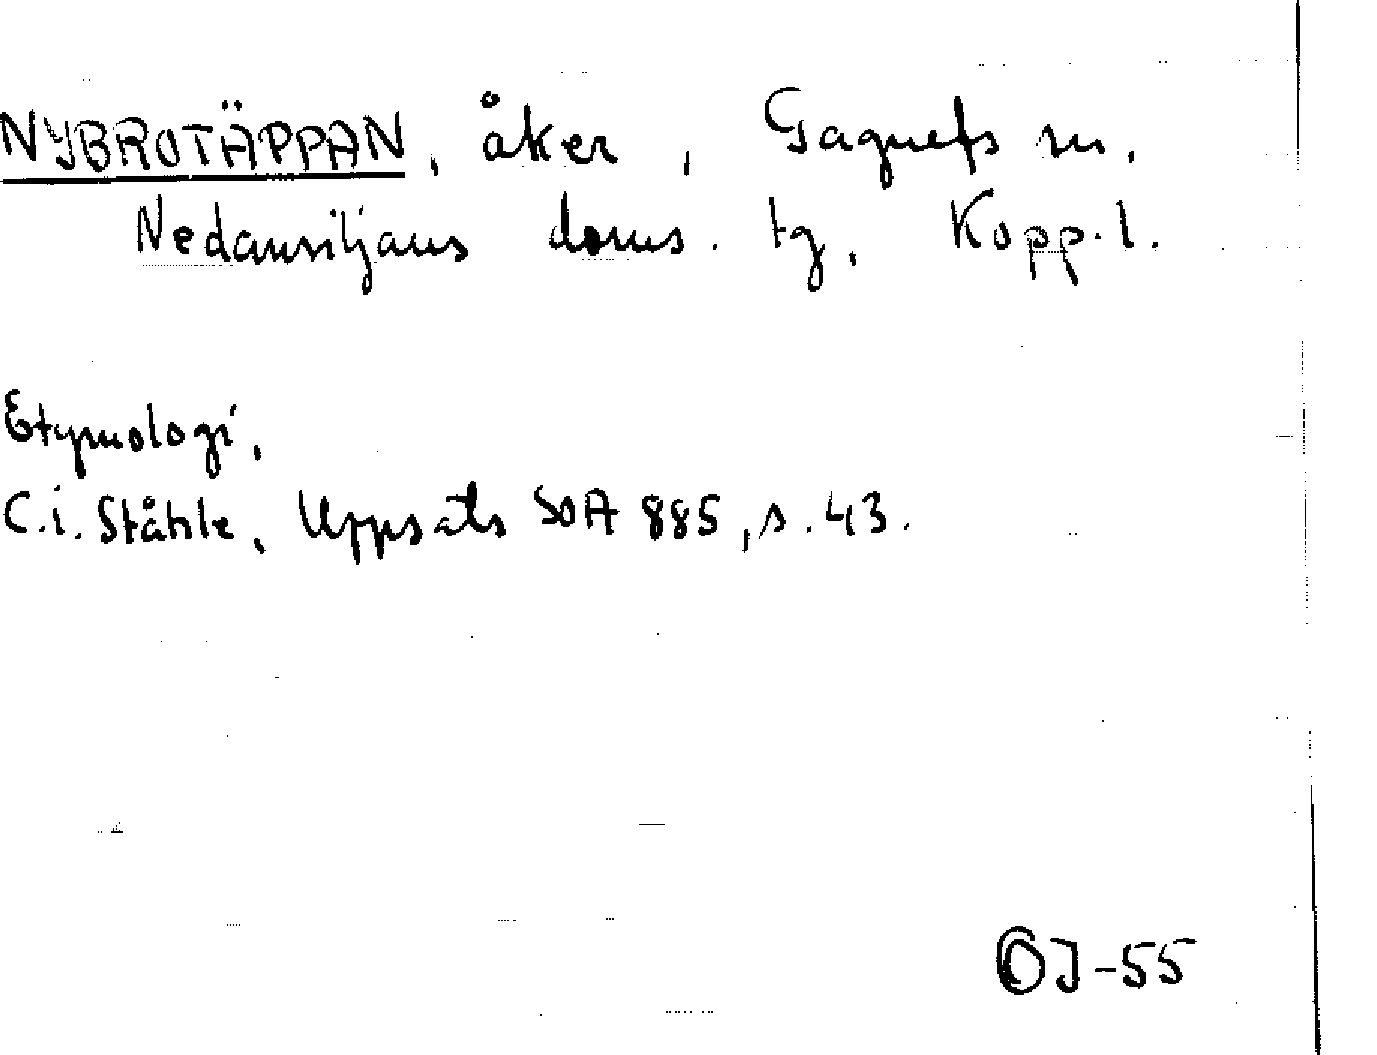 NYBROTÄPPAN, åker, Gagnefs sn,
Nedansiljans doms. tg, Kopp.l.
Etymologi,
C.i. Ståhle, Uppsats SOA 885, s. 43.
OJ-55